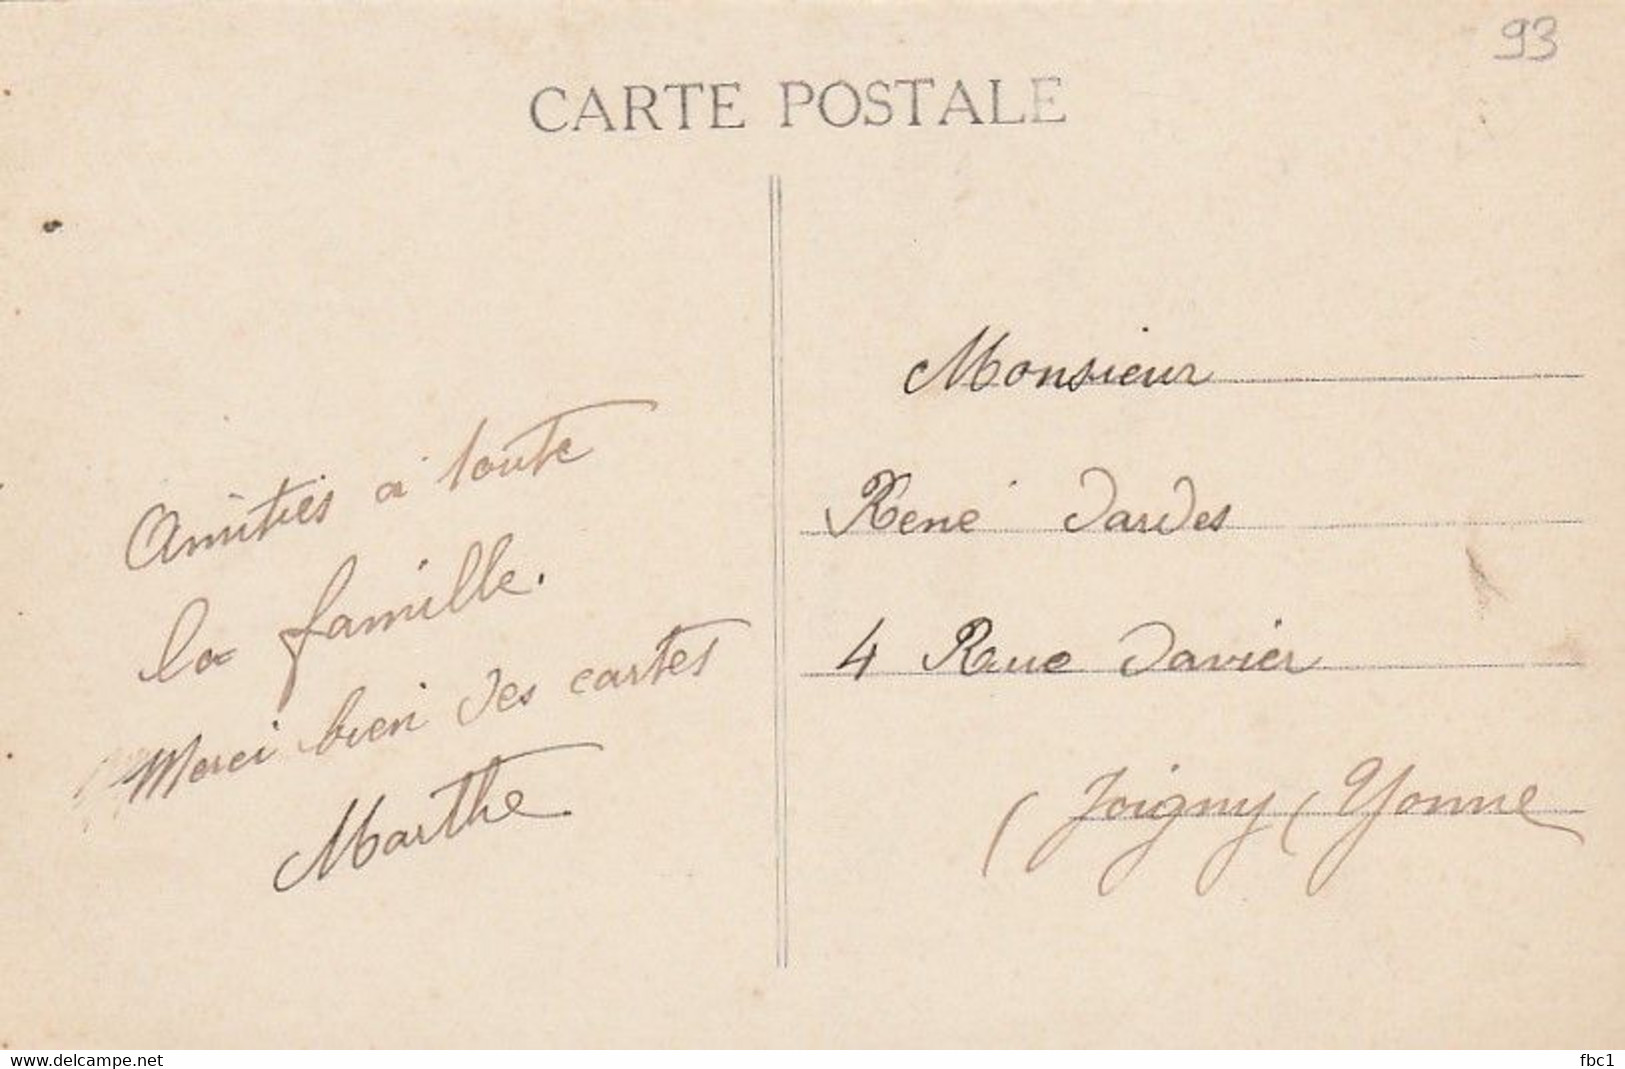 93
CARTE POSTALE
Amitiés à toute
la famille.
Merci bien des cartes
Marthe
Monsieur
René Dardes
4 Rue Davier
( Joigny ( Yonne
www.delcampe.net
fbc1